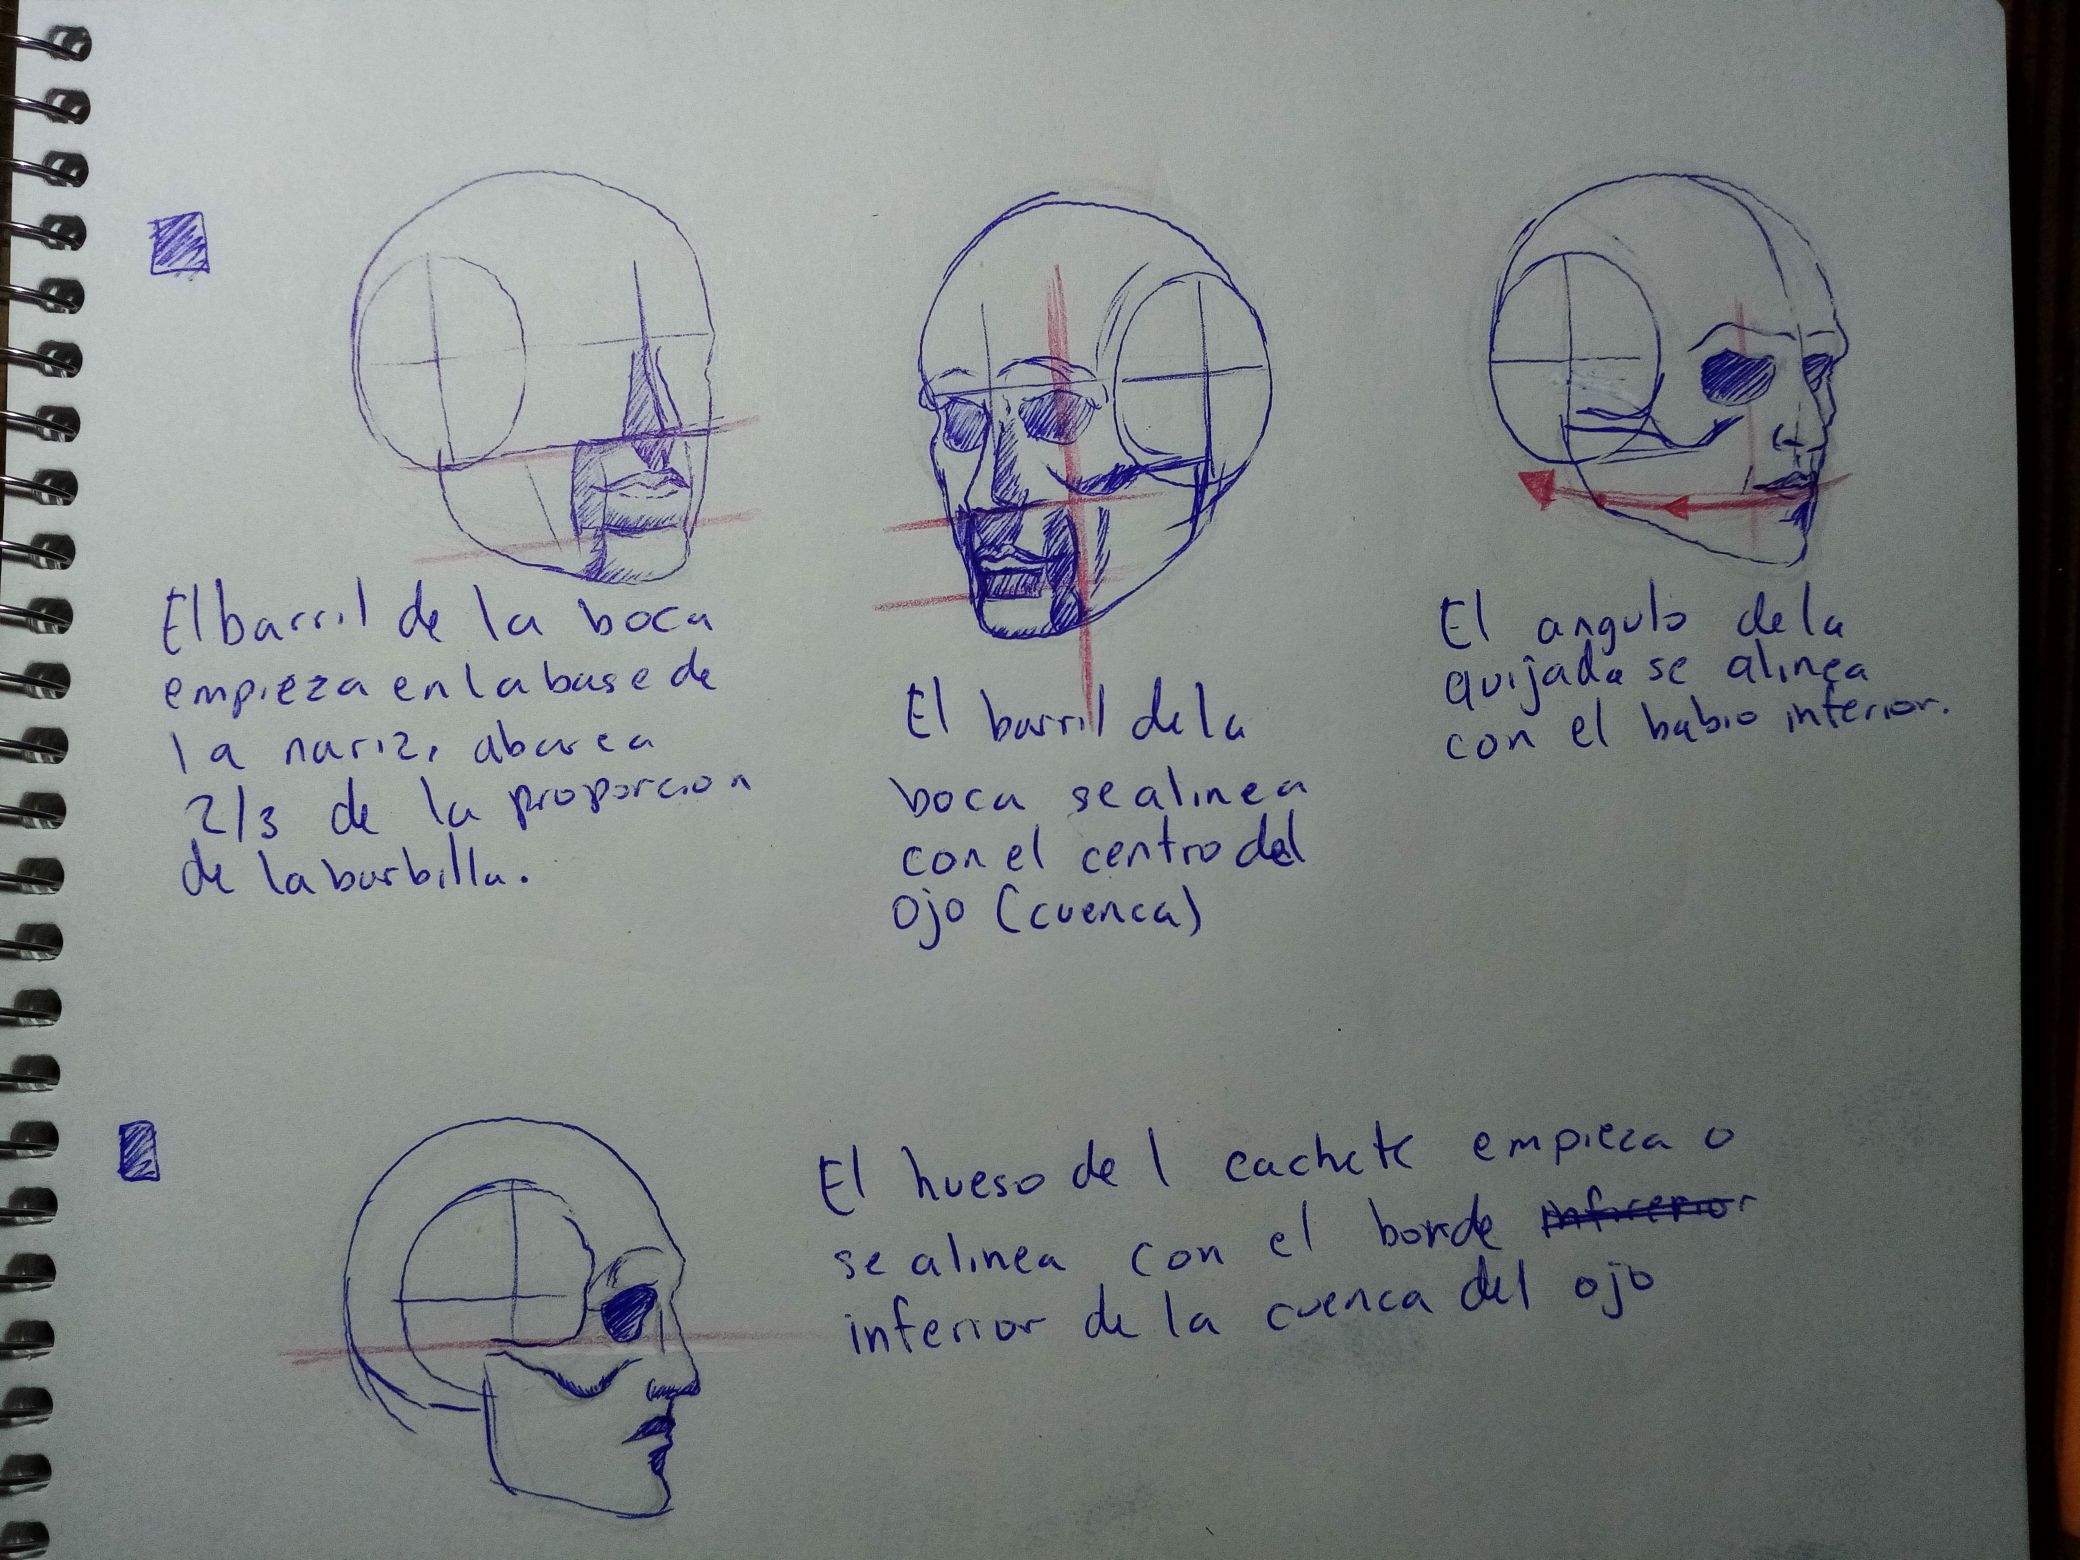 El barril de la boca
empieza en la base de
la nariz, abarca
2/3 de la proporcion
de la barbilla.
El barril de la
boca se alinea
con el centro del
ojo (cuenca)
El angulo de la
quijada se alinea
con el babio inferior.
El hueso del cachete empieza o
se alinea con el borde
inferior de la cuenca del ojo